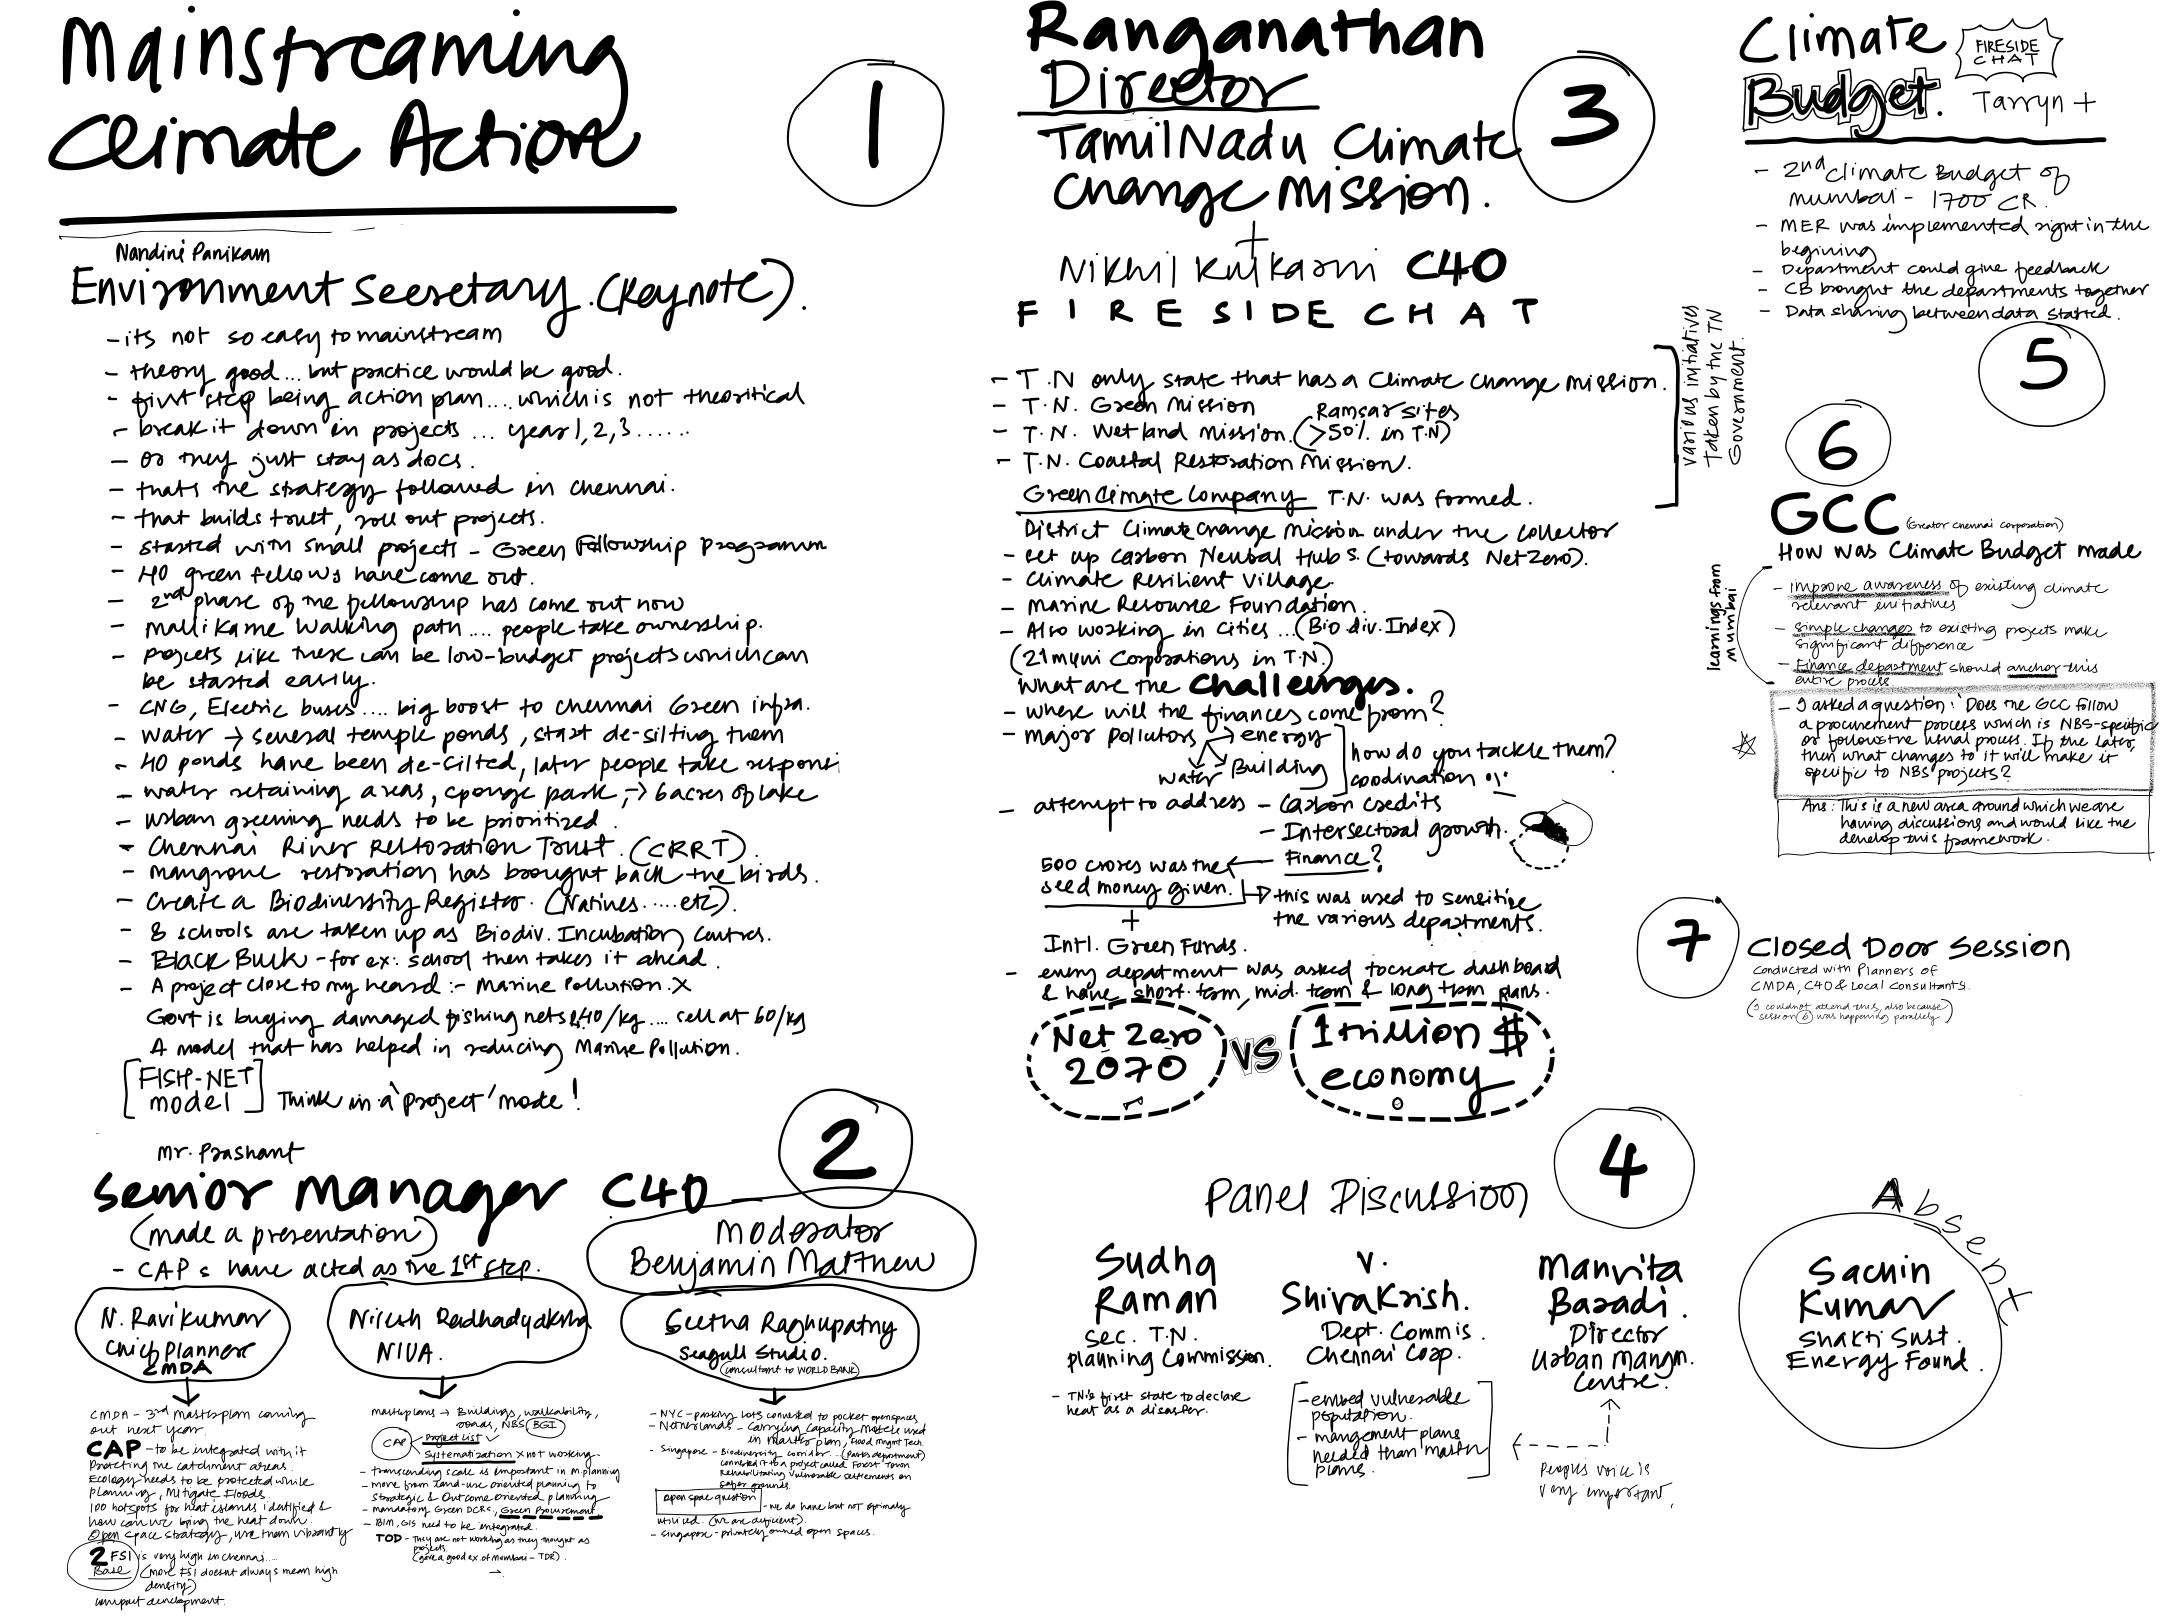 Mainstreaming
Climate Action
1
Nandini Panikam
Environment Secretary. (Keynote).
- its not so easy to mainstream
- theory good... but practice would be good.
- first step being action plan.... which is not theoritical
- break it down in projects ... year 1, 2, 3 .....
- or they just stay as docs.
- thats the strategy followed in chennai.
- that builds trust, roll out projects.
- started with small projects - Green Fellowship Programm
- 40 green fellows have come out.
- 2nd phase of the fellowship has come out now
- Walking path .... people take ownership.
- projects like these can be low-budget projects which can
be started easily.
- CNG, Electric buses.... big boost to chennai Green infra.
- Water → several temple ponds, start de-silting them
- 40 ponds have been de-silted, later people take responsi
- water retaining areas, sponge park, → 6 acres of lake
- urban greening needs to be prioritized.
- Chennai River Restoration Trust. (CRRT).
- mangrove restoration has brought back the birds.
- Create a Biodiversity Register. (Natives.... etc).
- 8 schools are taken up as Biodiv. Incubation Centres.
- Black Buck - for ex: school then takes it ahead.
- A project close to my heard :- Marine Pollution. X
Govt is buying damaged fishing nets @40/kg .... sell at 60/kg
A model that has helped in reducing Marine Pollution.
[FISH-NET
model] Think in a 'project' mode!
2
Mr. Prashant
Senior Manager C40
(made a presentation)
- CAPs have acted as the 1st step.
Moderator
Benjamin Matthew
N. Ravikumar
Chief Planner
CMDA
CMDA - 3rd masterplan coming
out next year.
CAP - to be integrated with it
Protecting the catchment areas.
Ecology needs to be protected while
planning, Mitigate Floods.
100 hotspots for heat islands identified &
how can we bring the heat down.
Open space strategy, use them vibrantly
2 FSI is very high in chennai....
Base (more FSI doesnt always mean high
density)
compact development.
Nilesh
NIUA.
masterplans → Buildings, walkability,
roads, NBS BGI
CAP Project List
Systematization X not working.
- transcending scale is important in M. planning
- move from land-use oriented planning to
Strategic & Outcome Oriented planning
- mandatory Green DCRs, Green Procurement
- BIM, GIS need to be integrated.
TOD - They are not working as they thought as
projects.
(gave a good ex. of mumbai - TDR).
Seetha Raghupathy
Seagull Studio.
(consultant to WORLD BANK)
- NYC - parking lots converted to pocket openspaces
- Netherlands - Carrying Capacity Matrix used
in master plan, Flood Mngmt Tech.
- Singapore - Biodiversity corridor... (Parks department)
connected it to a project called Forest Town
Rehabilitating vulnerable settlements on
safer grounds.
open space question - we do have but not optimaly
utilized. (we are deficient).
- Singapore - privately owned open spaces.
Ranganathan
Director
TamilNadu Climate
Change Mission.
+
Nikhil Kulkarni C40
FIRESIDE CHAT
3
- T.N only state that has a Climate Change Mission.
- T.N. Green Mission
- T.N. Wetland Mission. (Ramsar sites
>50% in T.N)
- T.N. Coastal Restoration Mission.
Green Climate Company T.N. was formed.
various initiatives
Taken by the TN
Government.
District Climate Change Mission under the Collector
- set up Carbon Neutral Hubs. (towards Net Zero).
- Climate Resilient Village.
- Marine Resource Foundation.
- Also working in Cities ... (Bio.div. Index)
(21 muni Corporations in T.N.)
What are the Challenges.
- where will the finances come from?
- major Pollutors → energy
Water Building
how do you tackle them?
coodination
- attempt to address - Carbon credits
- Intersectoral growth.
Finance?
500 crores was the
seed money given.
this was used to sensitize
the various departments.
+
Intl. Green Funds.
- every department was asked to create dashboard
& have short-term, mid. term & long term plans.
Net Zero
2070
VS
1 trillion $
economy
4
Panel Discussion
Sudha
Raman
Sec. T.N.
planning Commission.
- TN is first state to declare
heat as a disaster.
V.
ShivaKrish.
Dept. Commis.
Chennai Corp.
- embed vulnerable
population.
- mangement plans
needed than master
plans.
Manvita
Baradi.
Director
Urban Mangm.
Centre.
Peoples voice is
very important,
Absent
Sachin
Kumar
Shakti Sust.
Energy Found.
Climate
Budget.
FIRESIDE
CHAT
Tarryn +
- 2nd Climate Budget of
mumbai - 1700 CR.
- MER was implemented right in the
begining
- Department could give feedback
- CB brought the departments together
- Data sharing between data started.
5
6
GCC (Greater Chennai Corporation)
How was Climate Budget made
learnings from
mumbai
- improve awareness of existing climate
relevant initiatives
- simple changes to existing projects make
significant difference
- Finance department should anchor this
entire process.
- I asked a question: Does the GCC follow
a procurement process which is NBS-specific
or follows the usual process. If the later,
then what changes to it will make it
specific to NBS projects?
Ans: This is a new area around which we are
having discussions and would like the
develop this framework.
7
Closed Door Session
Conducted with Planners of
CMDA, C40 & Local Consultants.
(I couldnot attend this, also because
session 6 was happening parallely)